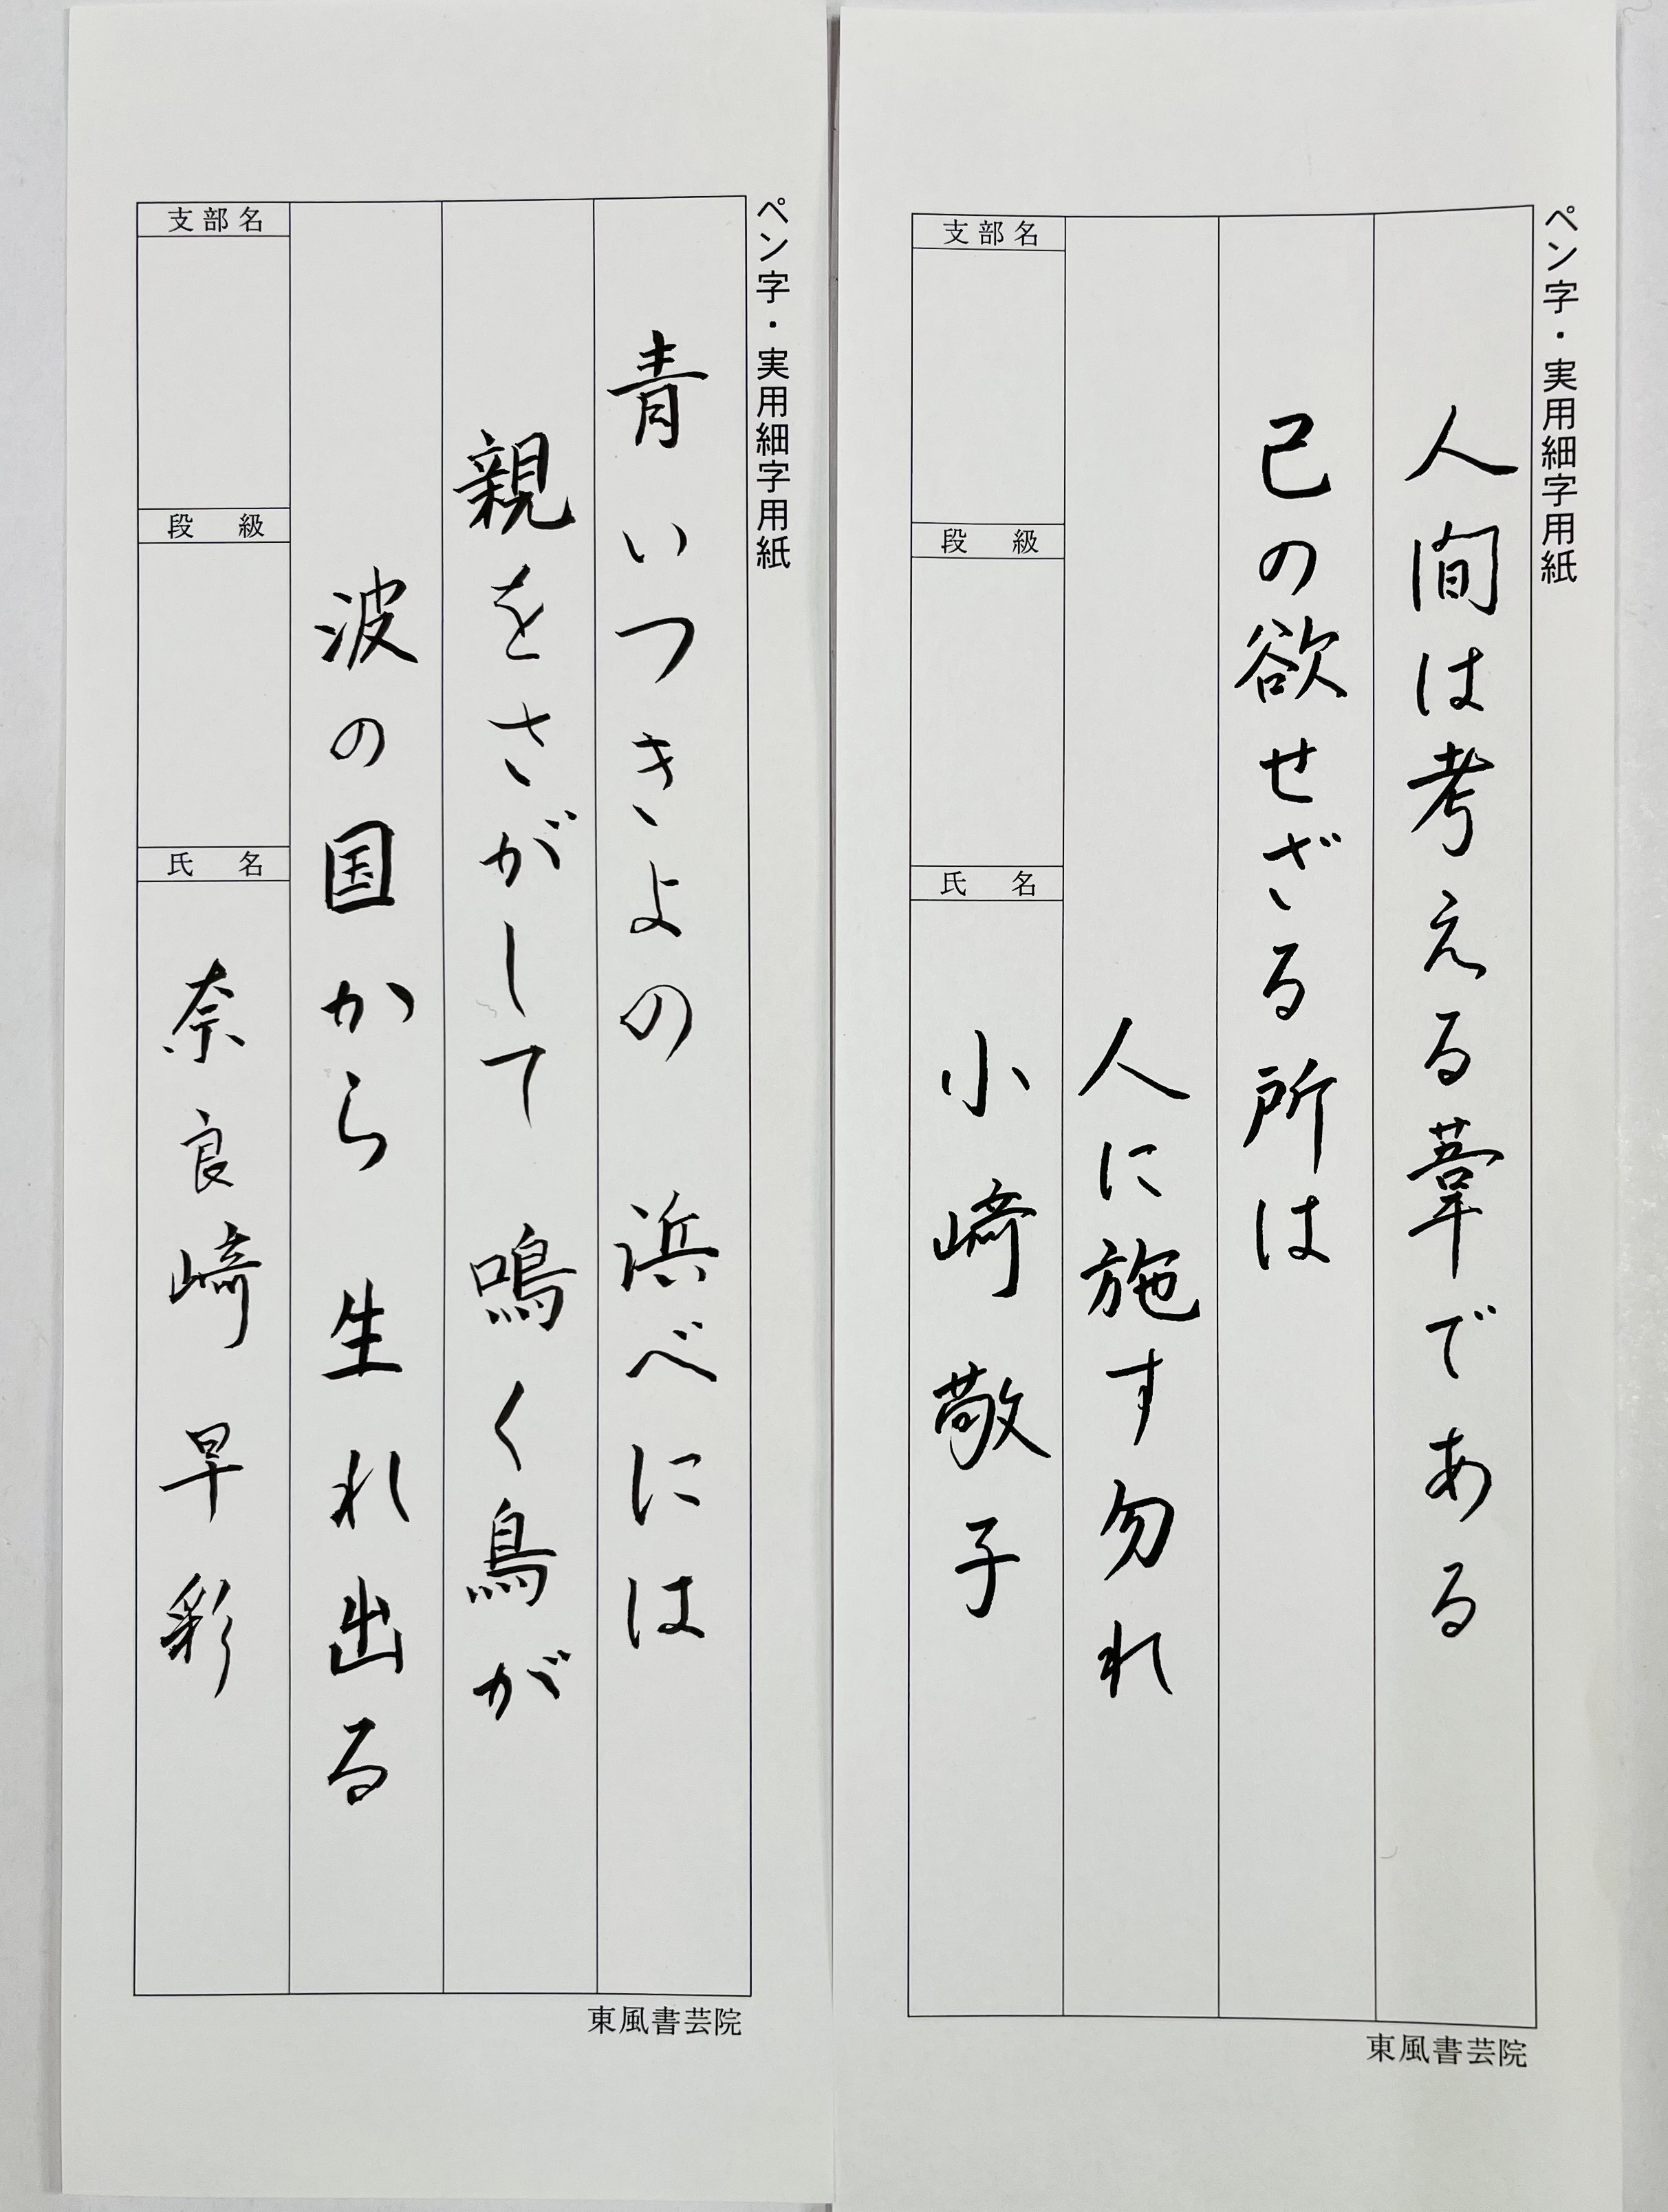 ペン字・実用細字用紙
人間は考える葦である
己の欲せざる所は
人に施す勿れ
支部名
段級
氏名
小崎敬子
東風書芸院
ペン字・実用細字用紙
青いつきよの 浜べには
親をさがして 鳴く鳥が
波の国から 生れ出る
支部名
段級
氏名
奈良崎早彩
東風書芸院